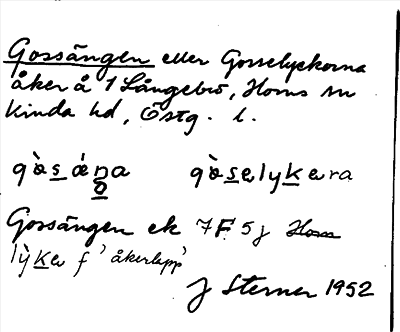 Gossängen eller Gosselyckorna
åker å 1 Långebro, Horns sn
Kinda hd, Östg. l.
gòsæ̀ŋa gòselykera
Gossängen ek 7F5j Horn
lỳke f' åkerlapp'
J Sterner 1952